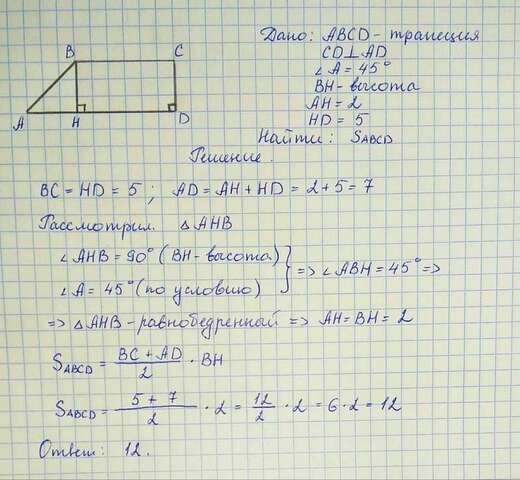 B C
A H D
Дано: ABCD - трапеция
CD⊥AD
∠A = 45°
BH - высота
AH = 2
HD = 5
Найти: SABCD
Решение.
BC = HD = 5; AD = AH + HD = 2 + 5 = 7
Рассмотрим. △AHB
∠AHB = 90° (BH - высота)
∠A = 45° (по условию) } => ∠ABH = 45° =>
=> △AHB - равнобедренный => AH = BH = 2
SABCD = (BC + AD)/2 · BH
SABCD = (5 + 7)/2 · 2 = 12/2 · 2 = 6 · 2 = 12
Ответ: 12.